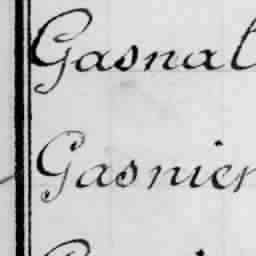 Gasnal
Gasnier